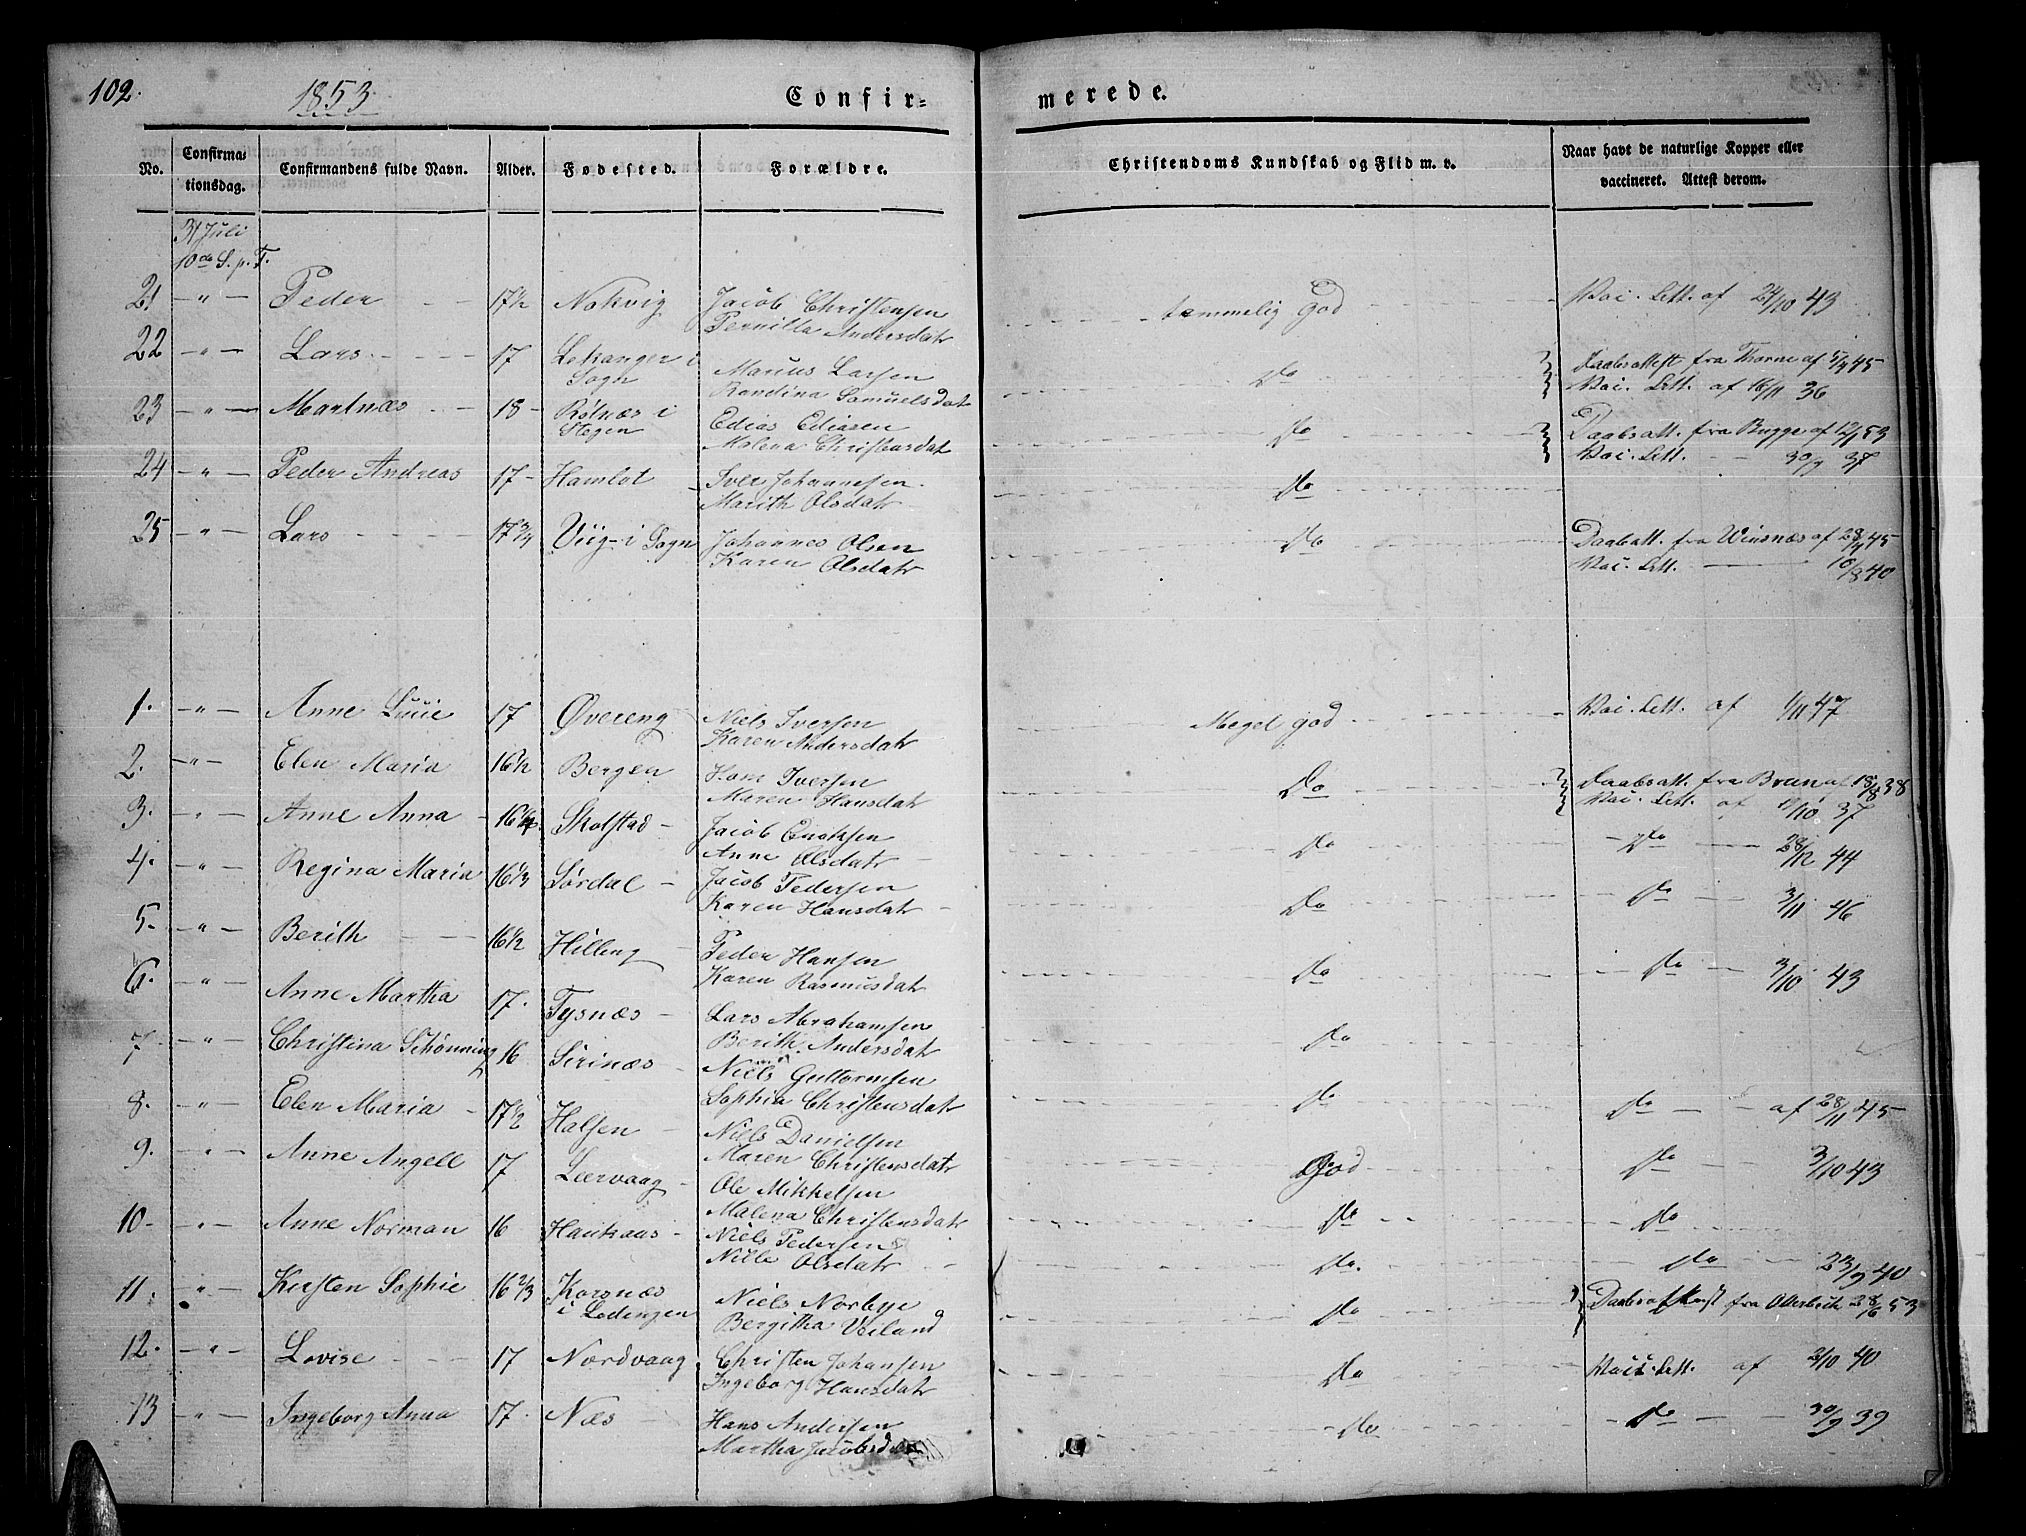 102.
1853
Confir=
merede.
No.
Confirma-
tionsdag.
Confirmandens fulde Navn.
Alder.
Fødested.
Forældre.
Christendoms Kundskab og Flid m. v.
Naar havt de naturlige Kopper eller
vaccineret. Attest derom.
31 Juli
10de S. p. T.
21 -"- Peder 17½ Nokvig Jacob Christensen temmelig god Vac. Att. af 24/10 43
Pernilla Andersdatr
22 -"- Lars 17 Lekanger i Marius Larsen Do Daabsattest fra Thorne af 5/4 45
Sogn Randina Samuelsdat Vac. Att. af 16/11 36
23 -"- Martnæs 18 Rølnæs i Edias Ediasen Do Daabsatt. fra Bugge af 12/1 53
Stegen Malena Christensdat Vac. Att. 30/9 37
24 -"- Peder Andreas 17 Hamlot Iver Johannesen Do
Marith Olsdatr
25 -"- Lars 17¾ Viig i Sogn Johannes Olsen Do Daabatt. fra Winsnæs af 28/4 45
Karen Olsdatr Vac. Att. 10/8 40
1. -"- Anne Lucie 17 Øvereng Niels Iversen Meget god Vac. Att. af 1/11 47
Karen Andersdatr
2. -"- Elen Maria 16½ Bergen Hans Iversen Do Daabsatt. fra Brun af 18/8 38
Maren Hansdatr Vac. Att. af 11/10 37
3. -"- Anne Anna 16¼ Skotstad Jacob Enoksen Do Do 28/12 44
Anne Olsdatr
4. -"- Regina Maria 16⅓ Sørdal Jacob Pedersen Do Do 3/11 46
Karen Hansdatr
5. -"- Berith 16½ Hilling Peder Hansen Do Do 3/10 43
Karen Rasmusdatr
6. -"- Anne Martha 17 Tysnæs Lars Abrahamsen Do
Berith Andersdatr
7. -"- Christina Schønning 16 Sirinæs Niels Guttormsen Do Do af 28/11 45
Sophia Christensdatr
8. -"- Elen Maria 17½ Halsen Niels Danielsen God Do 3/10 43
Maren Christensdatr
9. -"- Anne Angell 17 Leervaag Ole Mikkelsen Do Do
Malena Christensdatr
10. -"- Anne Norman 16 Haukaas Niels Pedersen Do. Do 23/9 40
Nille Olsdatr
11. -"- Kirsten Sophie 16⅔ Korsnæs Niels Norbye Do Daabsattest fra Otterbech 28/6 53
i Lødingen Bergitha Veiland
12. -"- Lovise 17 Nordvaag Christen Johansen Do Vac. Att. af 2/10 40
Ingeborg Hansdatr
13 -"- Ingeborg Anna 17. Næs Hans Andersen Do Do 30/9 39
Martha Jacobsdatr